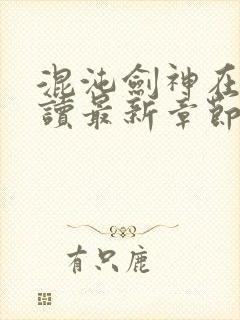 混沌劍神在
讀最新章節
有只鹿